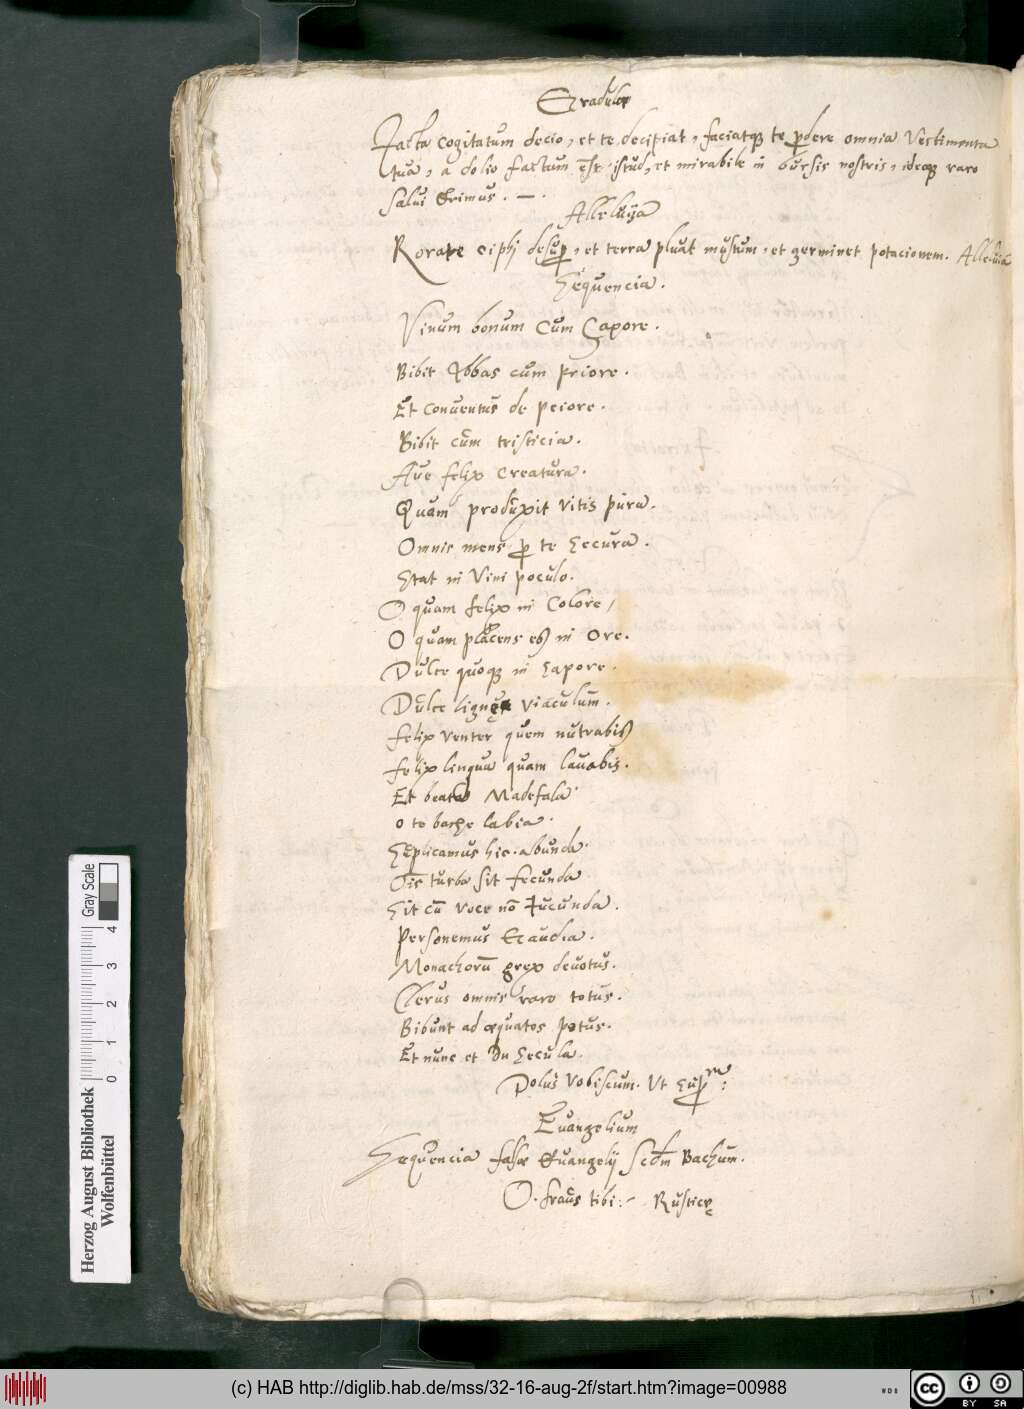 Gradule
Iacta cogitatum decio, et te decipiat, faciatqꝫ te ꝑdere omnia Vestimenta
tua, a dolio factum est istud, et mirabile in bursis nostris, ideoqꝫ raro
salui Erimus. — .
Alleluÿa
Rorate ciphi desuꝑ, et terra pluat mustum, et germinet potacionem. Alleluia
Sequencia.
Vinum bonum cum Sapore.
Bibit Abbas cum priore.
Et conuentus de peiore.
Bibit cum tristicia.
Aue felix creatura.
Quam produxit vitis pura.
Omnis mens ꝑ te Secura.
Stat in Vini poculo.
O quam felix in Colore/
O quam placens es in Ore.
Dulce quoqꝫ in Sapore.
Dulce lignum viaculum.
felix venter quem nutrabis
felix lingua quam lauabis.
Et beata Madefala
o te bache labia.
Supplicamus hic abunda.
Ois turba sit fecunda
Sit cū voce nō Iucunda.
Personemus Gaudia.
Monachorū grex deuotus.
Clerus omnis raro totus.
Bibunt ad æquatos potus.
Et nunc et Dn Secula.
Dolus vobiscum. Ut Supra:
Euangelium
Sequencia falsæ Euangelij Scdm Bachum.
O. fraus tibi :- Rustice
Herzog August Bibliothek
Wolfenbüttel
Gray Scale
0 1 2 3 4
(c) HAB http://diglib.hab.de/mss/32-16-aug-2f/start.htm?image=00988
WDB
cc BY SA